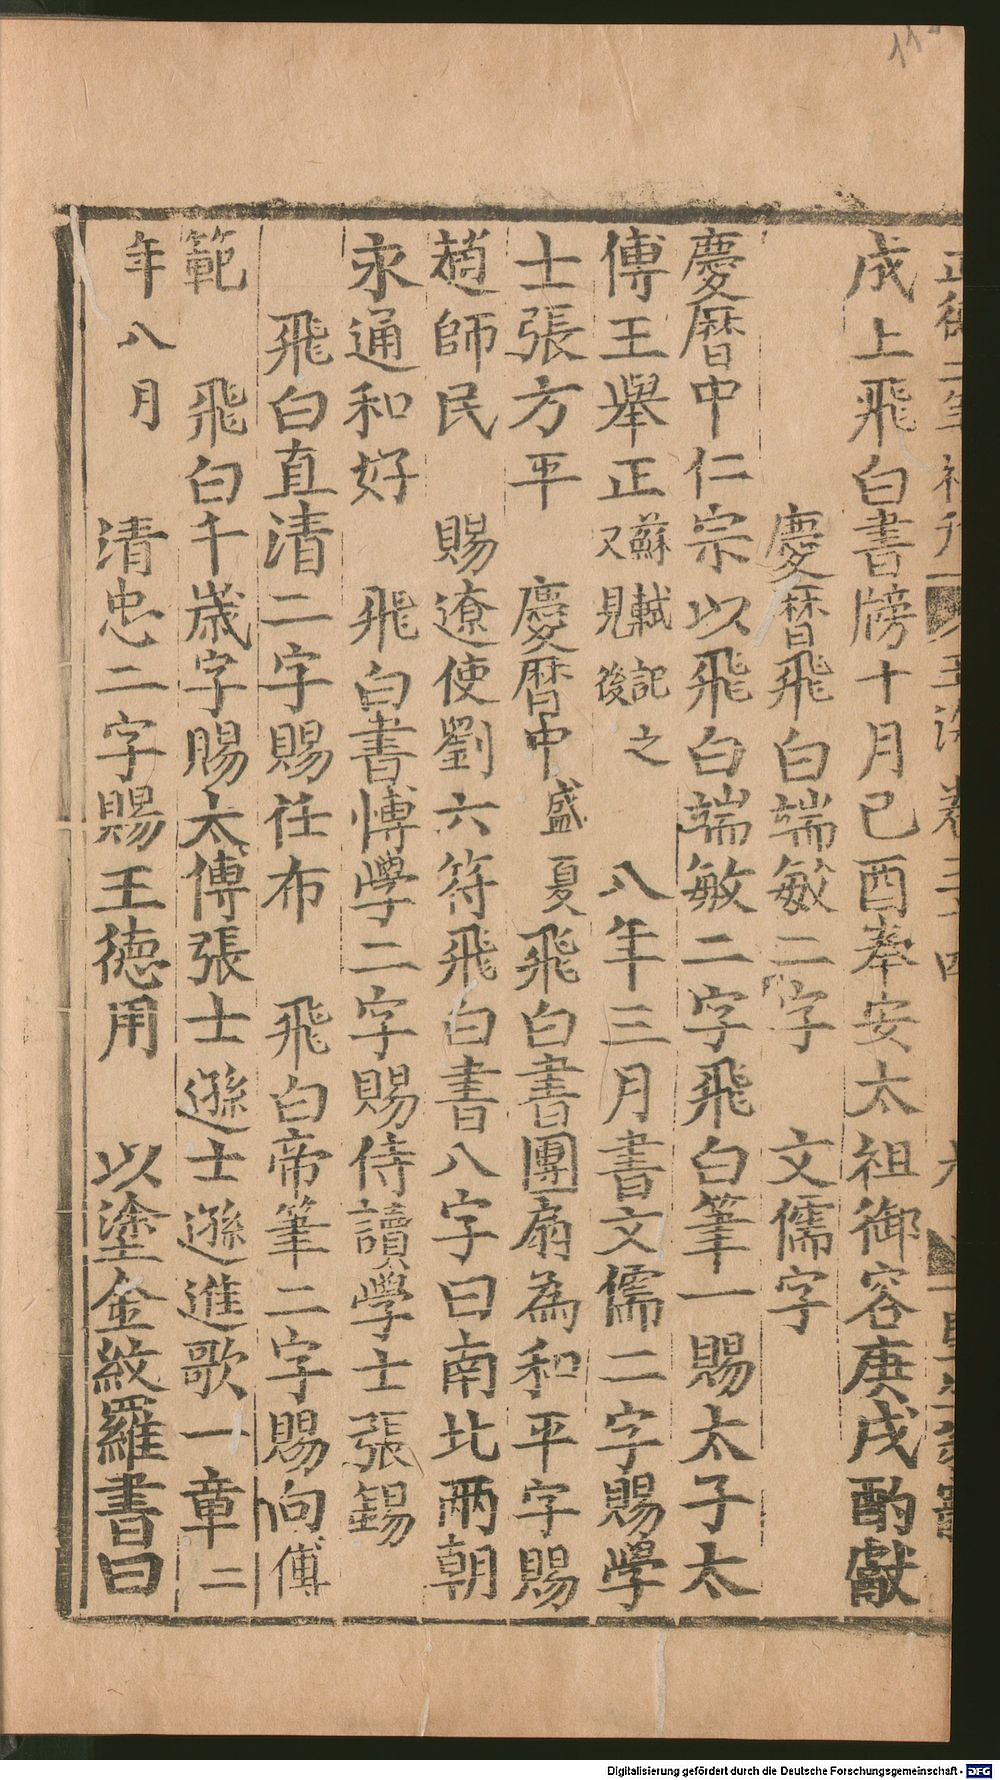 成上飛白書牓十月己酉奉安太祖御容庚戌酌獻
慶曆飛白端敏二字 文儒字
慶曆中仁宗以飛白端敏二字飛白筆一賜太子太
傅王舉正蘇軾記之又見後 八年三月書文儒二字賜學
士張方平 慶曆中盛夏飛白書團扇為和平字賜
趙師民 賜遼使劉六符飛白書八字曰南北兩朝
永通和好 飛白書愽學二字賜侍讀學士張錫
飛白直清二字賜任布 飛白帝筆二字賜向傳
範 飛白千歲字賜太傅張士遜士遜進歌一章二
年八月 清忠二字賜王德用 以塗金紋羅書曰
Digitalisierung gefördert durch die Deutsche Forschungsgemeinschaft - DFG